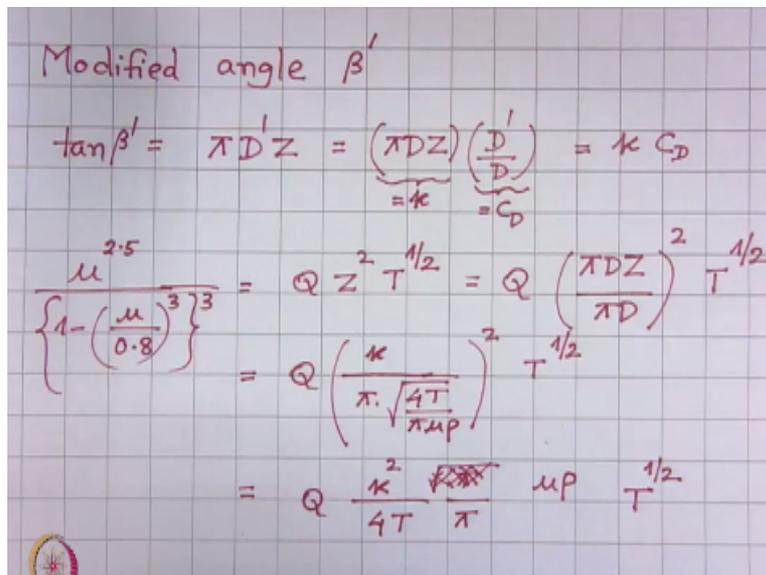 Modified angle β'
tanβ' = πD'Z = (πDZ) (D'/D) = K C_D
= K = C_D
μ^2.5 / {1-(μ/0.8)^3}^3 = Q Z^2 T^1/2 = Q (πDZ/πD)^2 T^1/2
= Q (K / π.√(4T/πμρ))^2 T^1/2
= Q K^2/4T /π μρ T^1/2